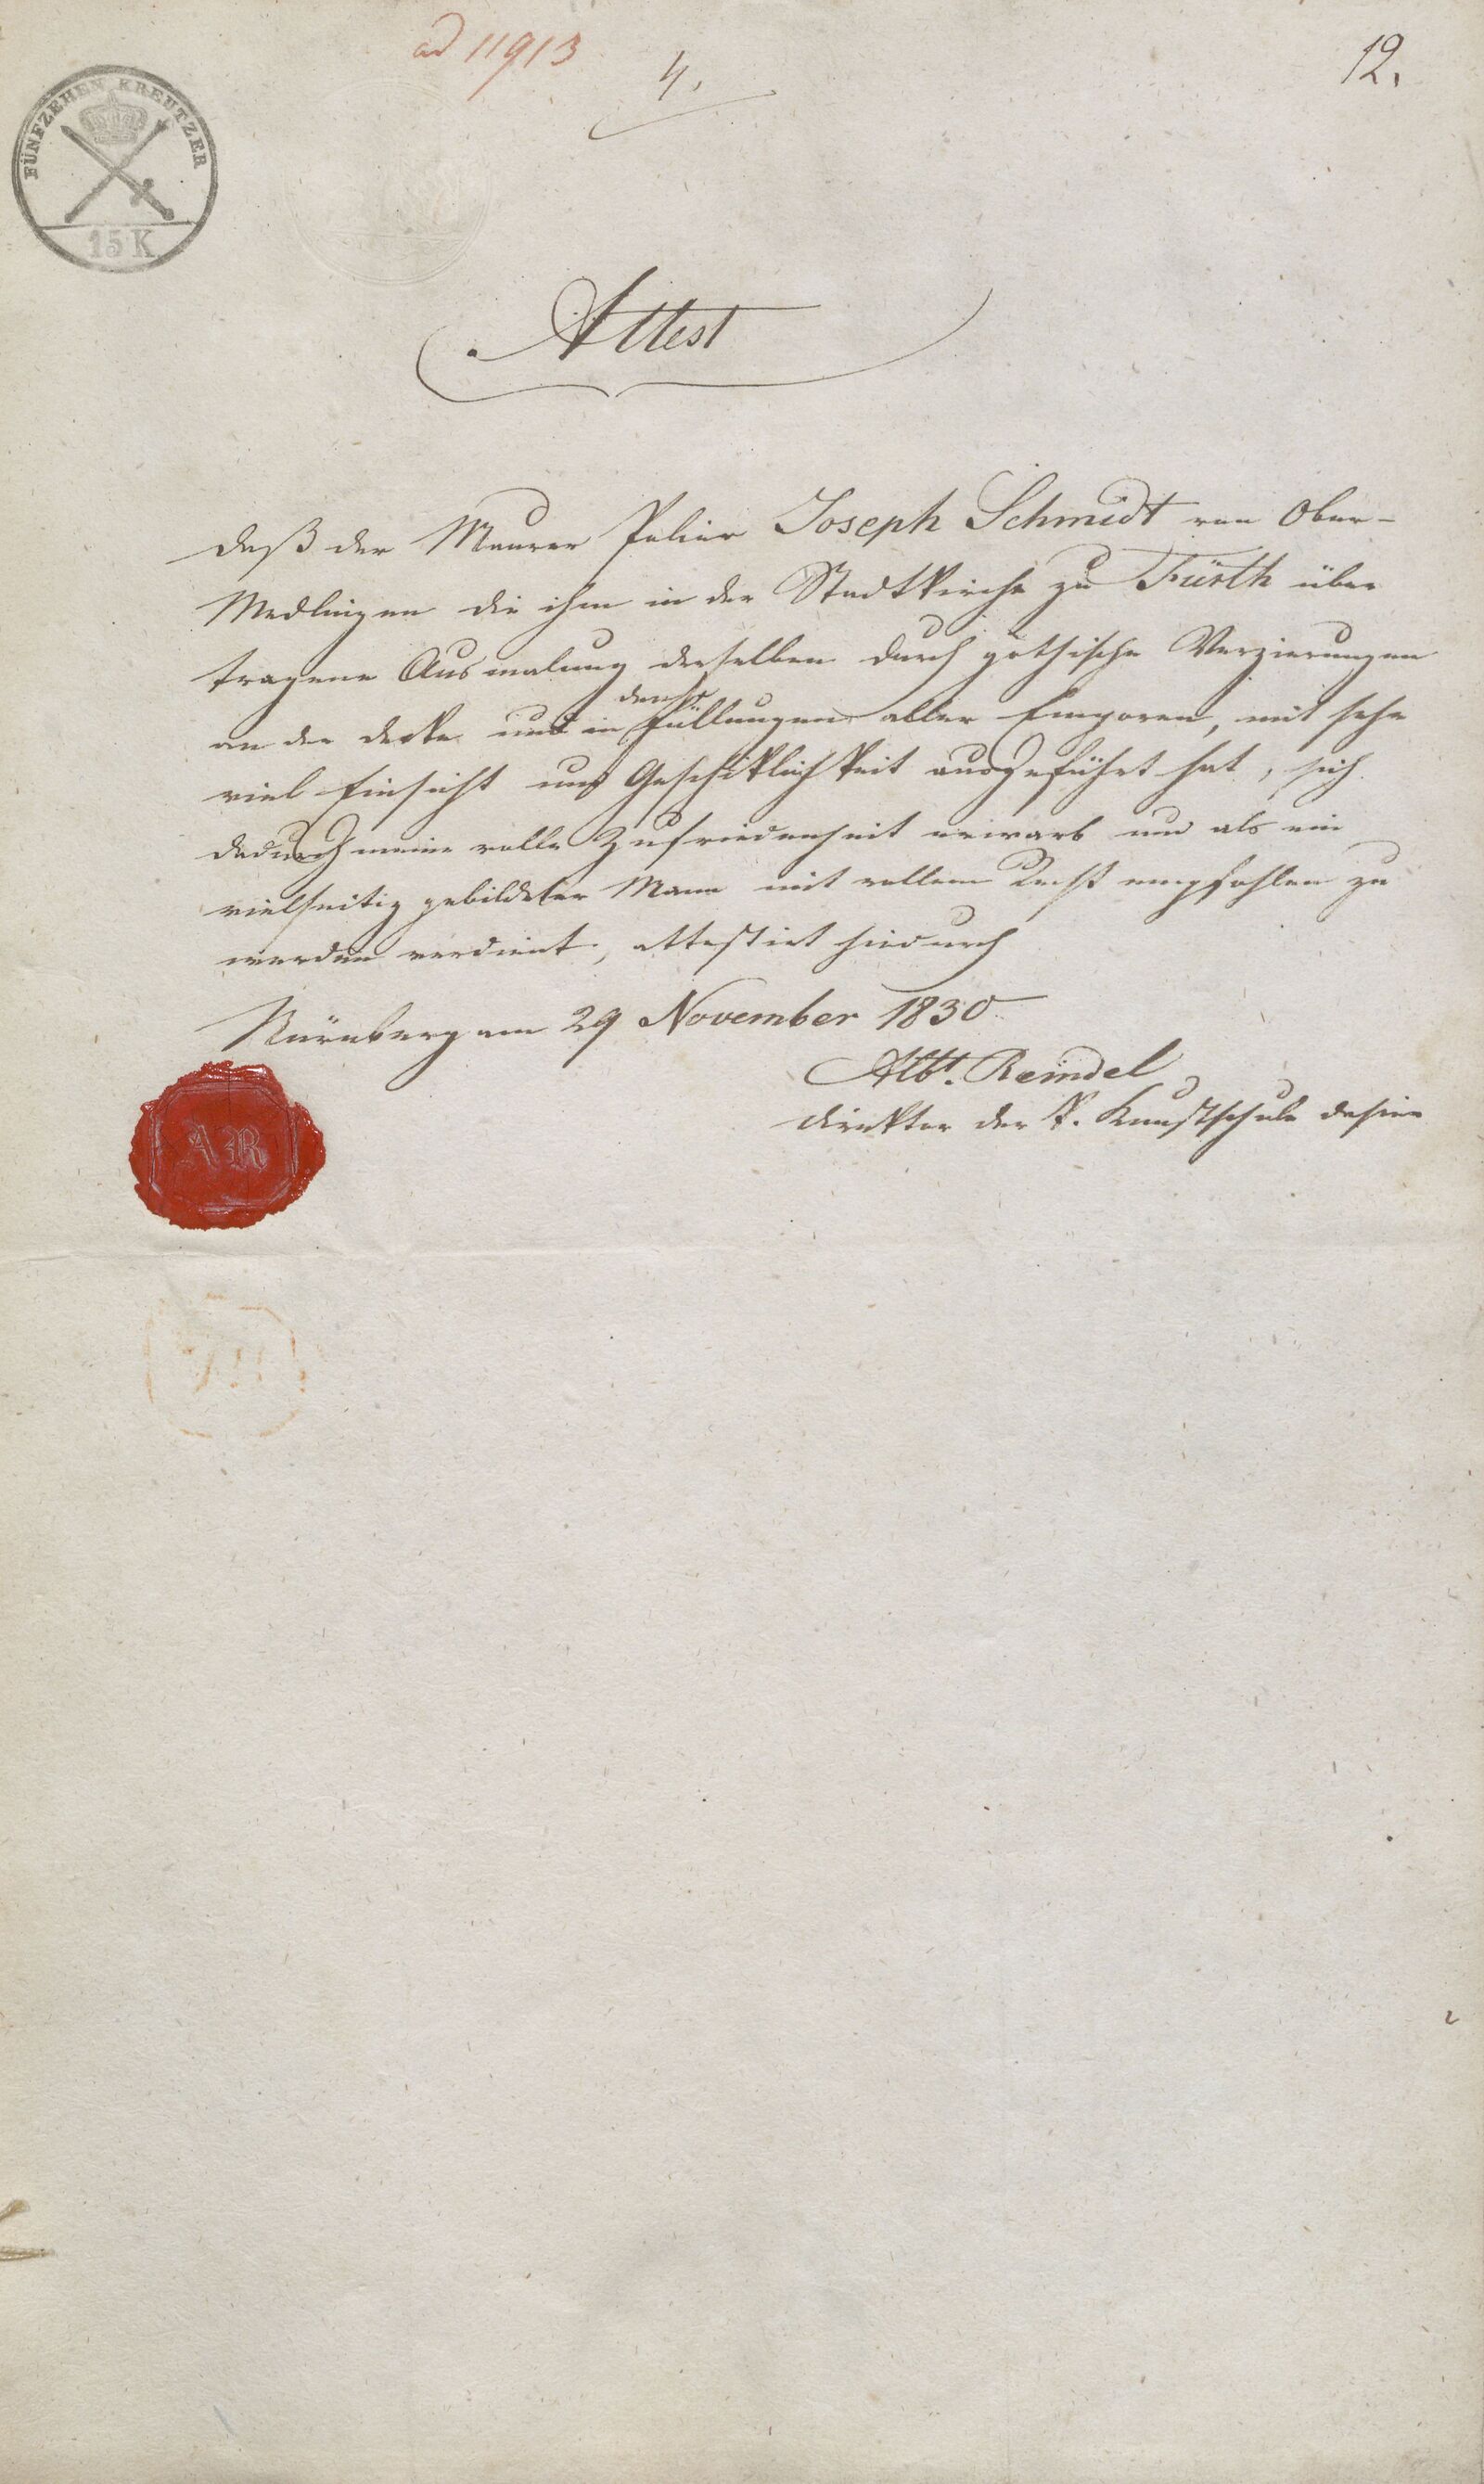 ad 11913
4.
12.
FÜNFZEHEN KREUTZER
15 K
Attest
daß der Maurer Palier Joseph Schmidt von Ober-
Medlingen die ihm in der Stadtkirche zu Fürth über
tragene Ausmalung derselben durch gothische Verzierungen
an der Decke und in den Füllungen aller Emporen, mit sehr
viel Einsicht und Geschiklichkeit ausgeführt hat, sich
dadurch meine volle Zufriedenheit erwarb und als ein
vielseitig gebildeter Mann mit vollem Recht empfohlen zu
werden verdient, attestirt hiedurch
Nürnberg am 29 November 1830.
Albt. Reindel
Direktor der k. Kunstschule dahier
AR